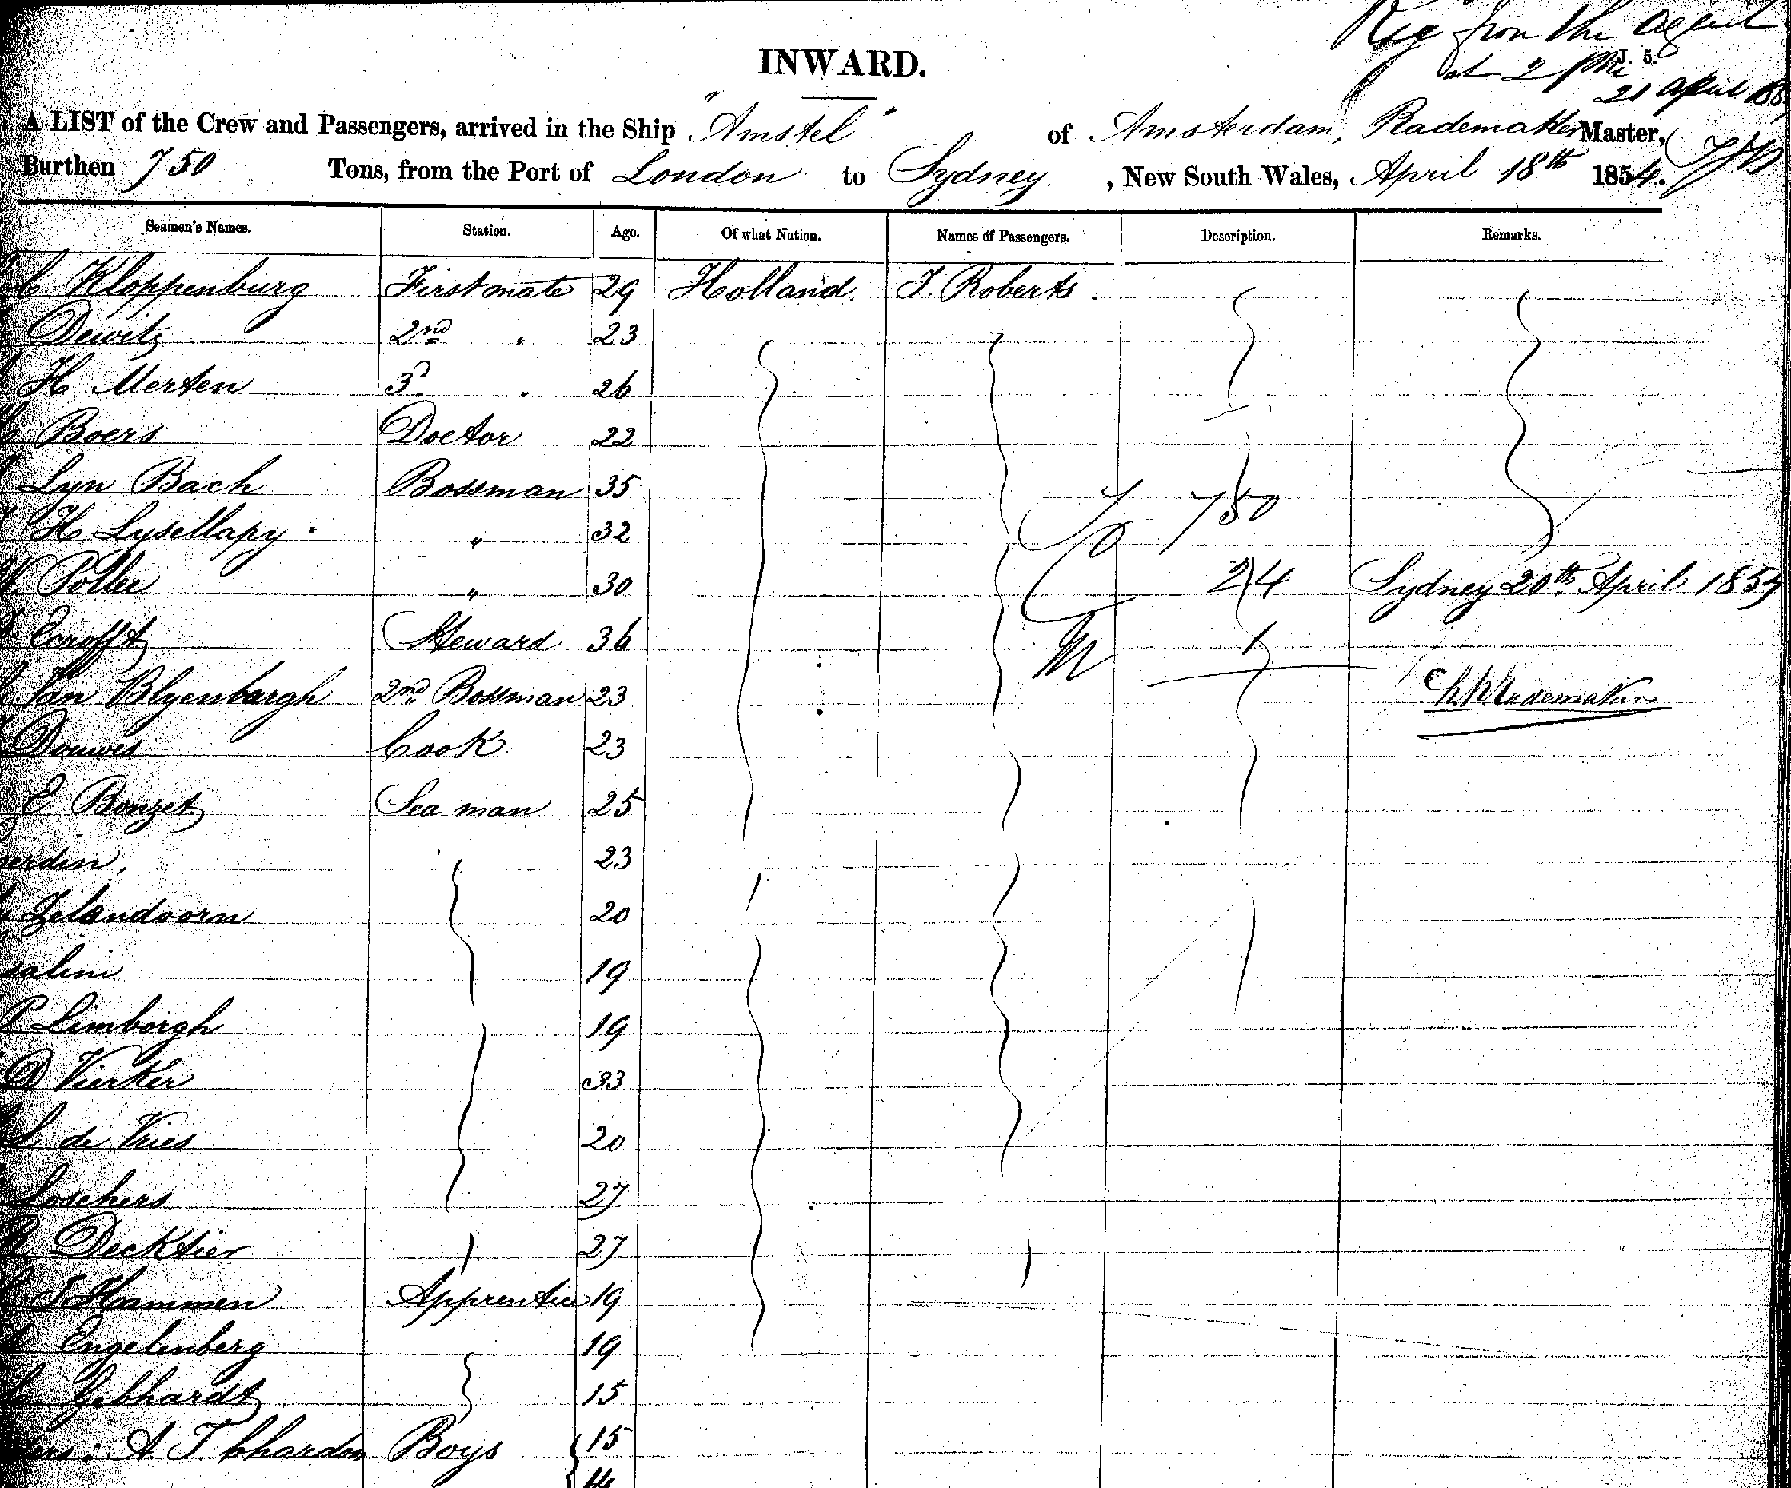 Rec from the agent
at 2 PM J. 5.
21 April
INWARD.
A LIST of the Crew and Passengers, arrived in the Ship "Amstel" of Amsterdam, Rademaker Master,
Burthen 750 Tons, from the Port of London to Sydney, New South Wales, April 18th 1854.
Seamen's Names. Station. Age. Of what Nation. Names of Passengers. Description. Remarks.
Kloppenburg First mate 29 Holland. J. Roberts.
Dewitz 2nd " 23
H Merten 3d " 26
Boers Doctor 22
Lyn Bach Bossman 35
750
H Lysellapy " 32
Polke " 30 24 Sydney 20th April 1854
Steward 36 1
Van Blyenbargh 2nd Bossman 23
Douwes Cook 23
E Bonzet Sea man 25
23
Zelandoorn 20
19
P Limborgh 19
D Vierker 33
de Vries 20
Loschers 27
Decktier 27
Hammen Apprentice 19
Engelenberg 19
Gebhardt 15
A. T. Boys 15
14